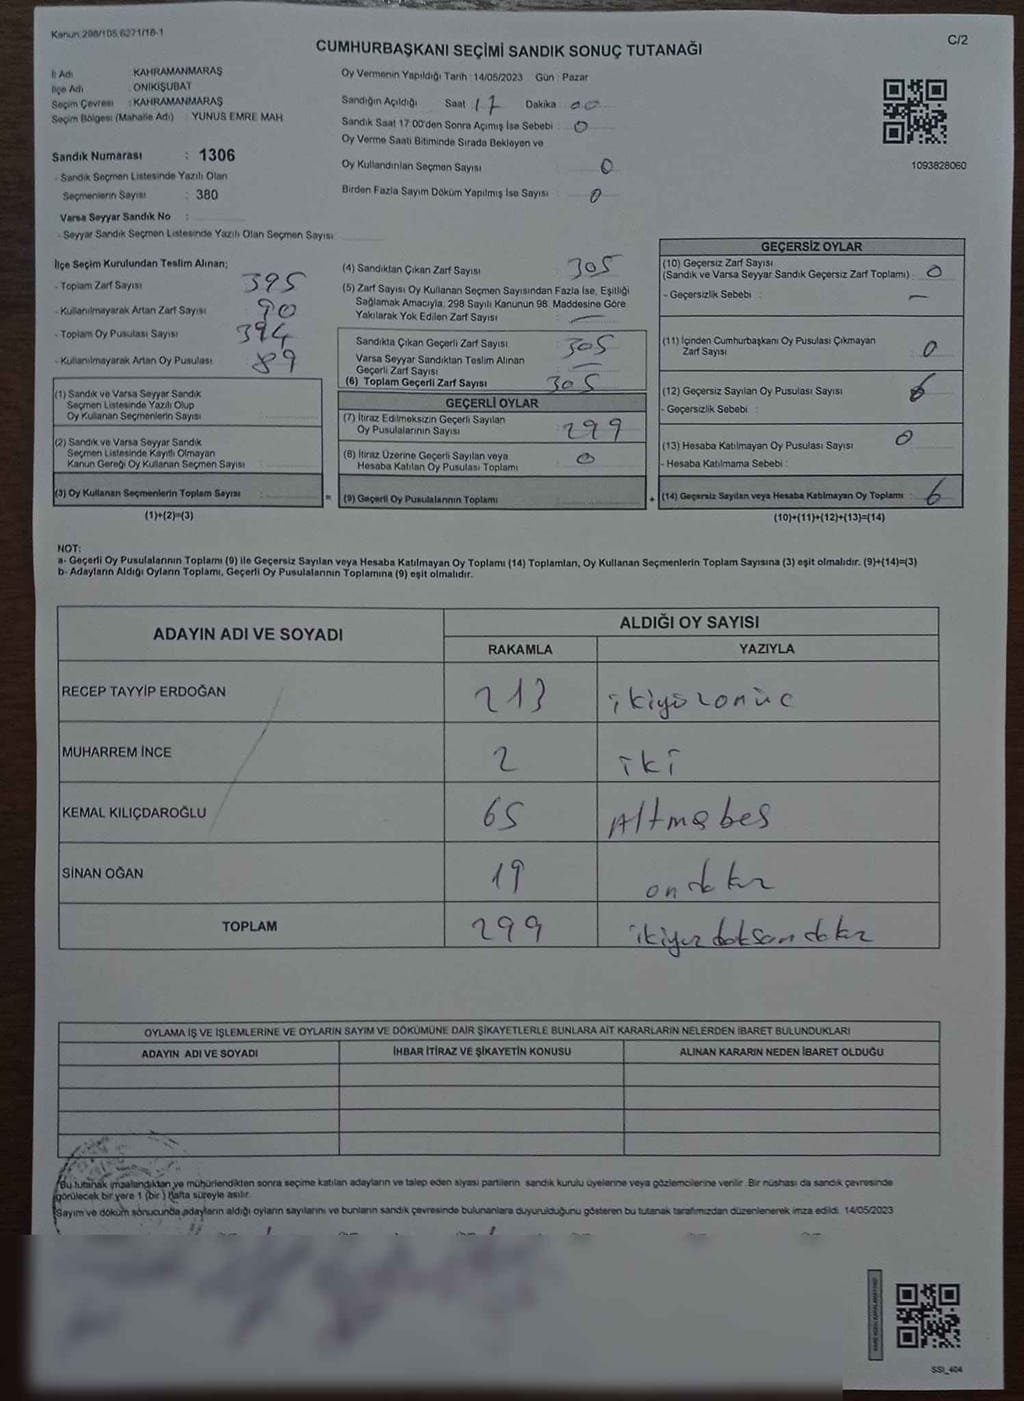 Kanun:298/105,6271/16-1
C/2
CUMHURBAŞKANI SEÇİMİ SANDIK SONUÇ TUTANAĞI
İl Adı KAHRAMANMARAŞ
İlçe Adı ONİKİŞUBAT
Seçim Çevresi : KAHRAMANMARAŞ
Seçim Bölgesi (Mahalle Adı) YUNUS EMRE MAH.
Sandık Numarası : 1306
- Sandık Seçmen Listesinde Yazılı Olan
Seçmenlerin Sayısı : 380
Varsa Seyyar Sandık No :
- Seyyar Sandık Seçmen Listesinde Yazılı Olan Seçmen Sayısı
Oy Vermenin Yapıldığı Tarih : 14/05/2023 Gün : Pazar
Sandığın Açıldığı Saat 17 Dakika : 00
Sandık Saat 17:00'den Sonra Açımış İse Sebebi : 0
Oy Verme Saati Bitiminde Sırada Bekleyen ve
Oy Kullandırılan Seçmen Sayısı 0
Birden Fazla Sayım Döküm Yapılmış İse Sayısı 0
1093828060
İlçe Seçim Kurulundan Teslim Alınan;
- Toplam Zarf Sayısı 395
- Kullanılmayarak Artan Zarf Sayısı 90
- Toplam Oy Pusulası Sayısı 394
- Kullanılmayarak Artan Oy Pusulası 89
(1) Sandık ve Varsa Seyyar Sandık
Seçmen Listesinde Yazılı Olup
Oy Kullanan Seçmenlerin Sayısı
(2) Sandık ve Varsa Seyyar Sandık
Seçmen Listesinde Kayıtlı Olmayan
Kanun Gereği Oy Kullanan Seçmen Sayısı
(3) Oy Kullanan Seçmenlerin Toplam Sayısı
(1)+(2)=(3)
(4) Sandıktan Çıkan Zarf Sayısı 305
(5) Zarf Sayısı Oy Kullanan Seçmen Sayısından Fazla İse, Eşitliği
Sağlamak Amacıyla; 298 Sayılı Kanunun 98. Maddesine Göre
Yakılarak Yok Edilen Zarf Sayısı —
Sandıkta Çıkan Geçerli Zarf Sayısı 305
Varsa Seyyar Sandıktan Teslim Alınan
Geçerli Zarf Sayısı —
(6) Toplam Geçerli Zarf Sayısı 305
GEÇERLİ OYLAR
(7) İtiraz Edilmeksizin Geçerli Sayılan
Oy Pusulalarının Sayısı 299
(8) İtiraz Üzerine Geçerli Sayılan veya
Hesaba Katılan Oy Pusulası Toplamı 0
= (9) Geçerli Oy Pusulalarının Toplamı
GEÇERSİZ OYLAR
(10) Geçersiz Zarf Sayısı
(Sandık ve Varsa Seyyar Sandık Geçersiz Zarf Toplamı) : 0
- Geçersizlik Sebebi : —
(11) İçinden Cumhurbaşkanı Oy Pusulası Çıkmayan
Zarf Sayısı 0
(12) Geçersiz Sayılan Oy Pusulası Sayısı 6
- Geçersizlik Sebebi :
(13) Hesaba Katılmayan Oy Pusulası Sayısı 0
- Hesaba Katılmama Sebebi :
+ (14) Geçersiz Sayılan veya Hesaba Katılmayan Oy Toplamı : 6
(10)+(11)+(12)+(13)=(14)
NOT:
a- Geçerli Oy Pusulalarının Toplamı (9) ile Geçersiz Sayılan veya Hesaba Katılmayan Oy Toplamı (14) Toplamları, Oy Kullanan Seçmenlerin Toplam Sayısına (3) eşit olmalıdır. (9)+(14)=(3)
b- Adayların Aldığı Oyların Toplamı, Geçerli Oy Pusulalarının Toplamına (9) eşit olmalıdır.
ADAYIN ADI VE SOYADI ALDIĞI OY SAYISI
RAKAMLA YAZIYLA
RECEP TAYYİP ERDOĞAN 213 ikiyüzonüc
MUHARREM İNCE 2 iki
KEMAL KILIÇDAROĞLU 65 Altmışbeş
SİNAN OĞAN 19 ondokuz
TOPLAM 299 ikiyüzdoksandokuz
OYLAMA İŞ VE İŞLEMLERİNE VE OYLARIN SAYIM VE DÖKÜMÜNE DAİR ŞİKAYETLERLE BUNLARA AİT KARARLARIN NELERDEN İBARET BULUNDUKLARI
ADAYIN ADI VE SOYADI İHBAR İTİRAZ VE ŞİKAYETİN KONUSU ALINAN KARARIN NEDEN İBARET OLDUĞU
Bu tutanak imzalandıktan ve mühürlendikten sonra seçime katılan adayların ve talep eden siyasi partilerin sandık kurulu üyelerine veya gözlemcilerine verilir. Bir nüshası da sandık çevresinde
görülecek bir yere 1 (bir) hafta süreyle asılır.
Sayım ve döküm sonucunda adayların aldığı oyların sayılarını ve bunların sandık çevresinde bulunanlara duyurulduğunu gösteren bu tutanak tarafımızdan düzenlenerek imza edildi. 14/05/2023
SSI_404